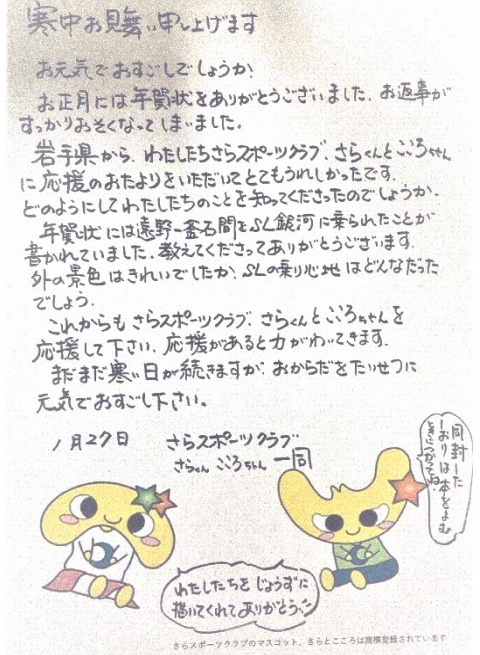 寒中お見舞い申し上げます
お元気でおすごしでしょうか。
お正月には年賀状をありがとうございました。お返事が
すっかりおそくなってしまいました。
岩手県から、わたしたちさらスポーツクラブ、さらくんとこころちゃん
に応援のおたよりをいただいてとてもうれしかったです。
どのようにしてわたしたちのことを知ってくださったのでしょうか。
年賀状には遠野ー釜石間をSL銀河に乗られたことが
書かれていました。教えてくださってありがとうございます。
外の景色はきれいでしたか、SLの乗り心地はどんなだった
でしょう。
これからもさらスポーツクラブ、さらくんとこころちゃんを
応援して下さい。応援があると力がわいてきます。
まだまだ寒い日が続きますが、おからだをたいせつに
元気でおすごし下さい。
1月27日 さらスポーツクラブ
さらくん こころちゃん 一同
同封した
しおりは本をよむ
ときにつかってね。
わたしたちをじょうずに
描いてくれてありがとう
さらスポーツクラブのマスコット、さらとこころは商標登録されています